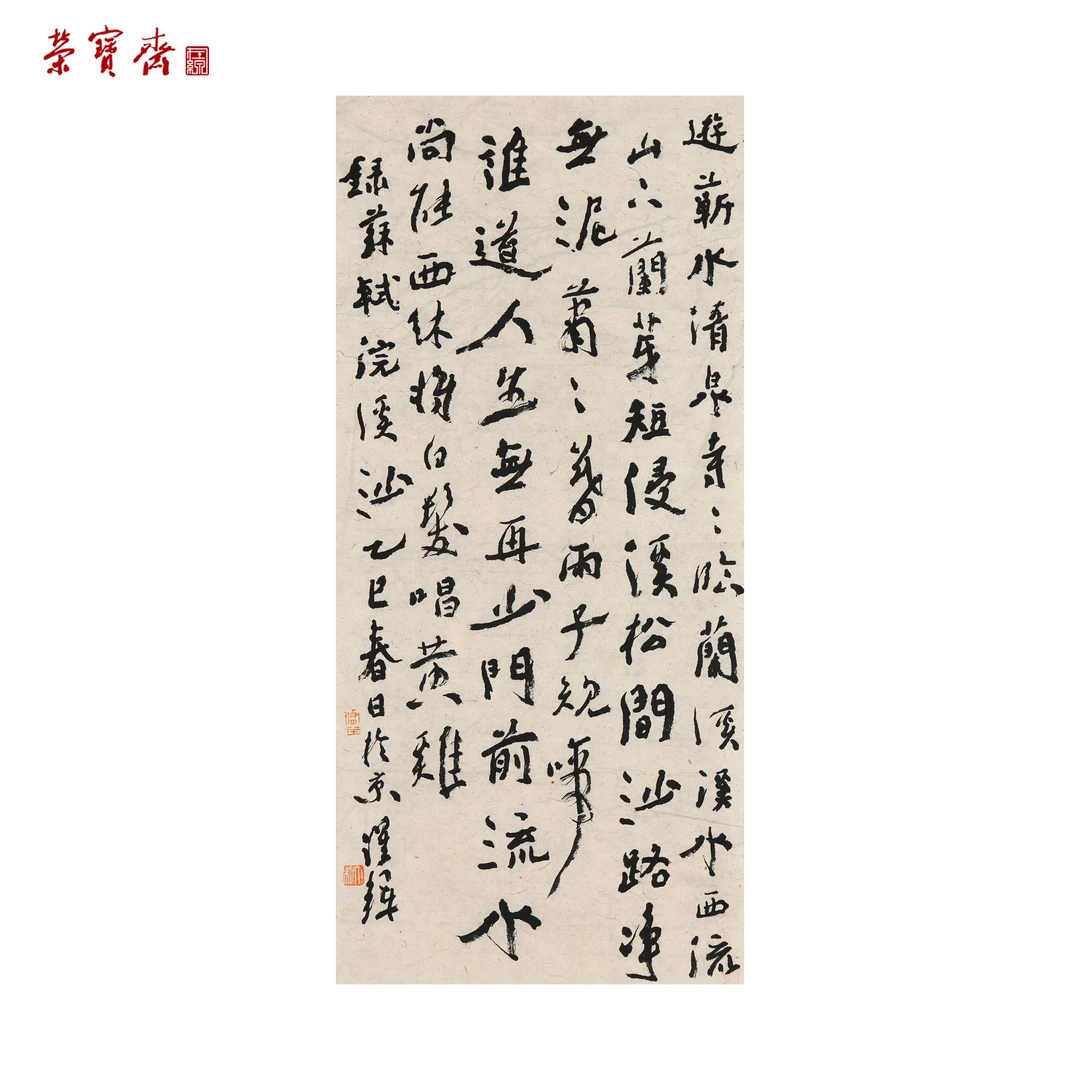 榮寶齋
遊蘄水清泉寺〻臨蘭溪溪水西流
山下蘭芽短侵溪松間沙路净
無泥蕭〻暮雨子規啼
誰道人生無再少門前流水
尚能西休將白髮唱黃雞
錄蘇軾浣溪沙乙巳春日於京